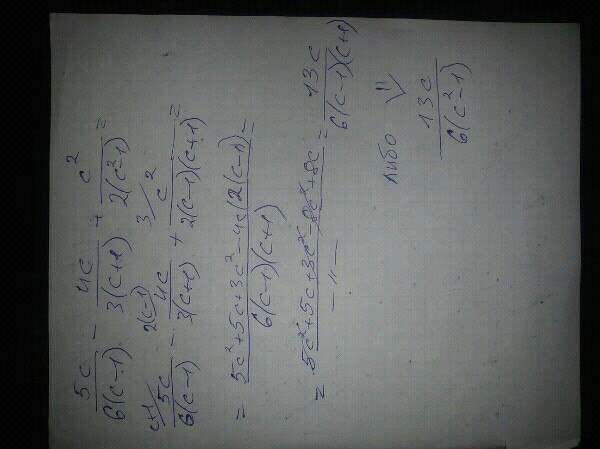 5c/6(c-1) - 4c/3(c+1) + c²/2(c²-1) =
c+1/ 5c/6(c-1) - 2(c-1)/ 4c/3(c+1) + 3/ c²/2(c-1)(c+1) =
= 5c²+5c+3c²-4c(2(c-1))/6(c-1)(c+1) =
= 5c²+5c+3c²-8c²+8c/-"- = 13c/6(c-1)(c+1)
либо
13c/6(c²-1)